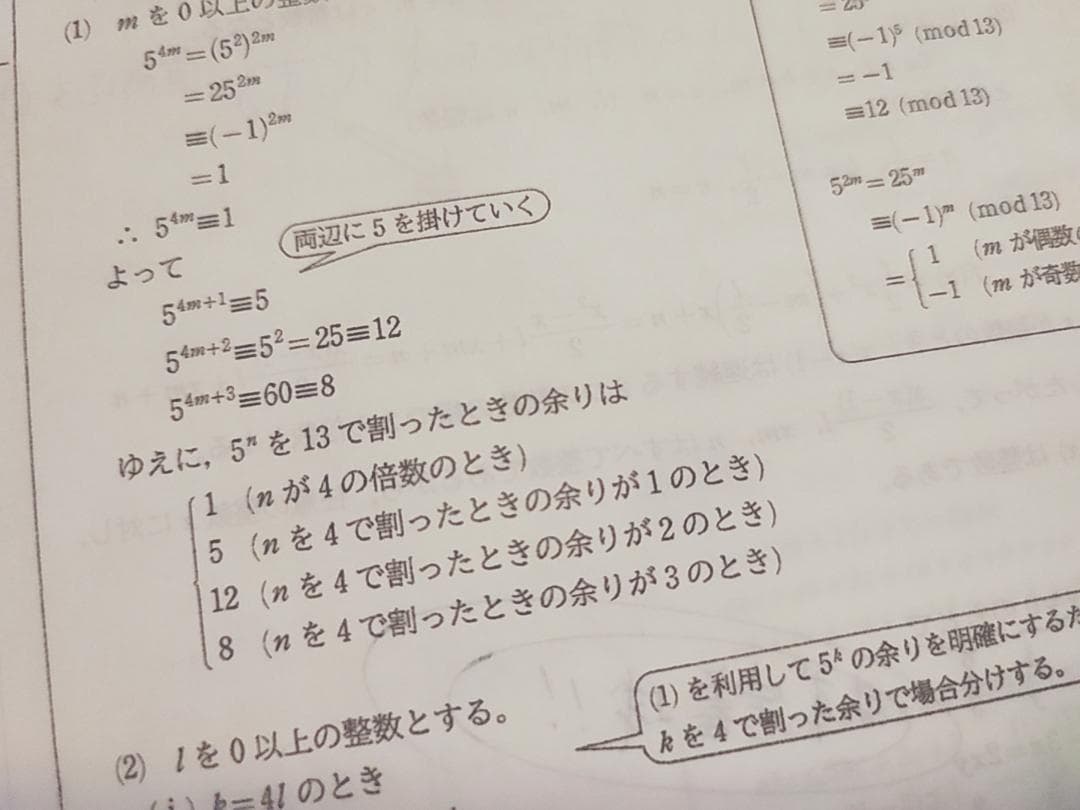 (1) mを0以上の整数
5^{4m}=(5^2)^{2m}
=25^{2m}
≡(-1)^{2m}
=1
∴ 5^{4m}≡1
両辺に5を掛けていく
よって
5^{4m+1}≡5
5^{4m+2}≡5^2=25≡12
5^{4m+3}≡60≡8
ゆえに，5^nを13で割ったときの余りは
1 (nが4の倍数のとき)
5 (nを4で割ったときの余りが1のとき)
12 (nを4で割ったときの余りが2のとき)
8 (nを4で割ったときの余りが3のとき)
(1)を利用して5^kの余りを明確にするた
kを4で割った余りで場合分けする。
(2) lを0以上の整数とする。
(i) k=4lのとき
≡(-1)^5 (mod13)
=-1
≡12 (mod13)
5^{2m}=25^m
≡(-1)^m (mod13)
={1 (mが偶数
-1 (mが奇数